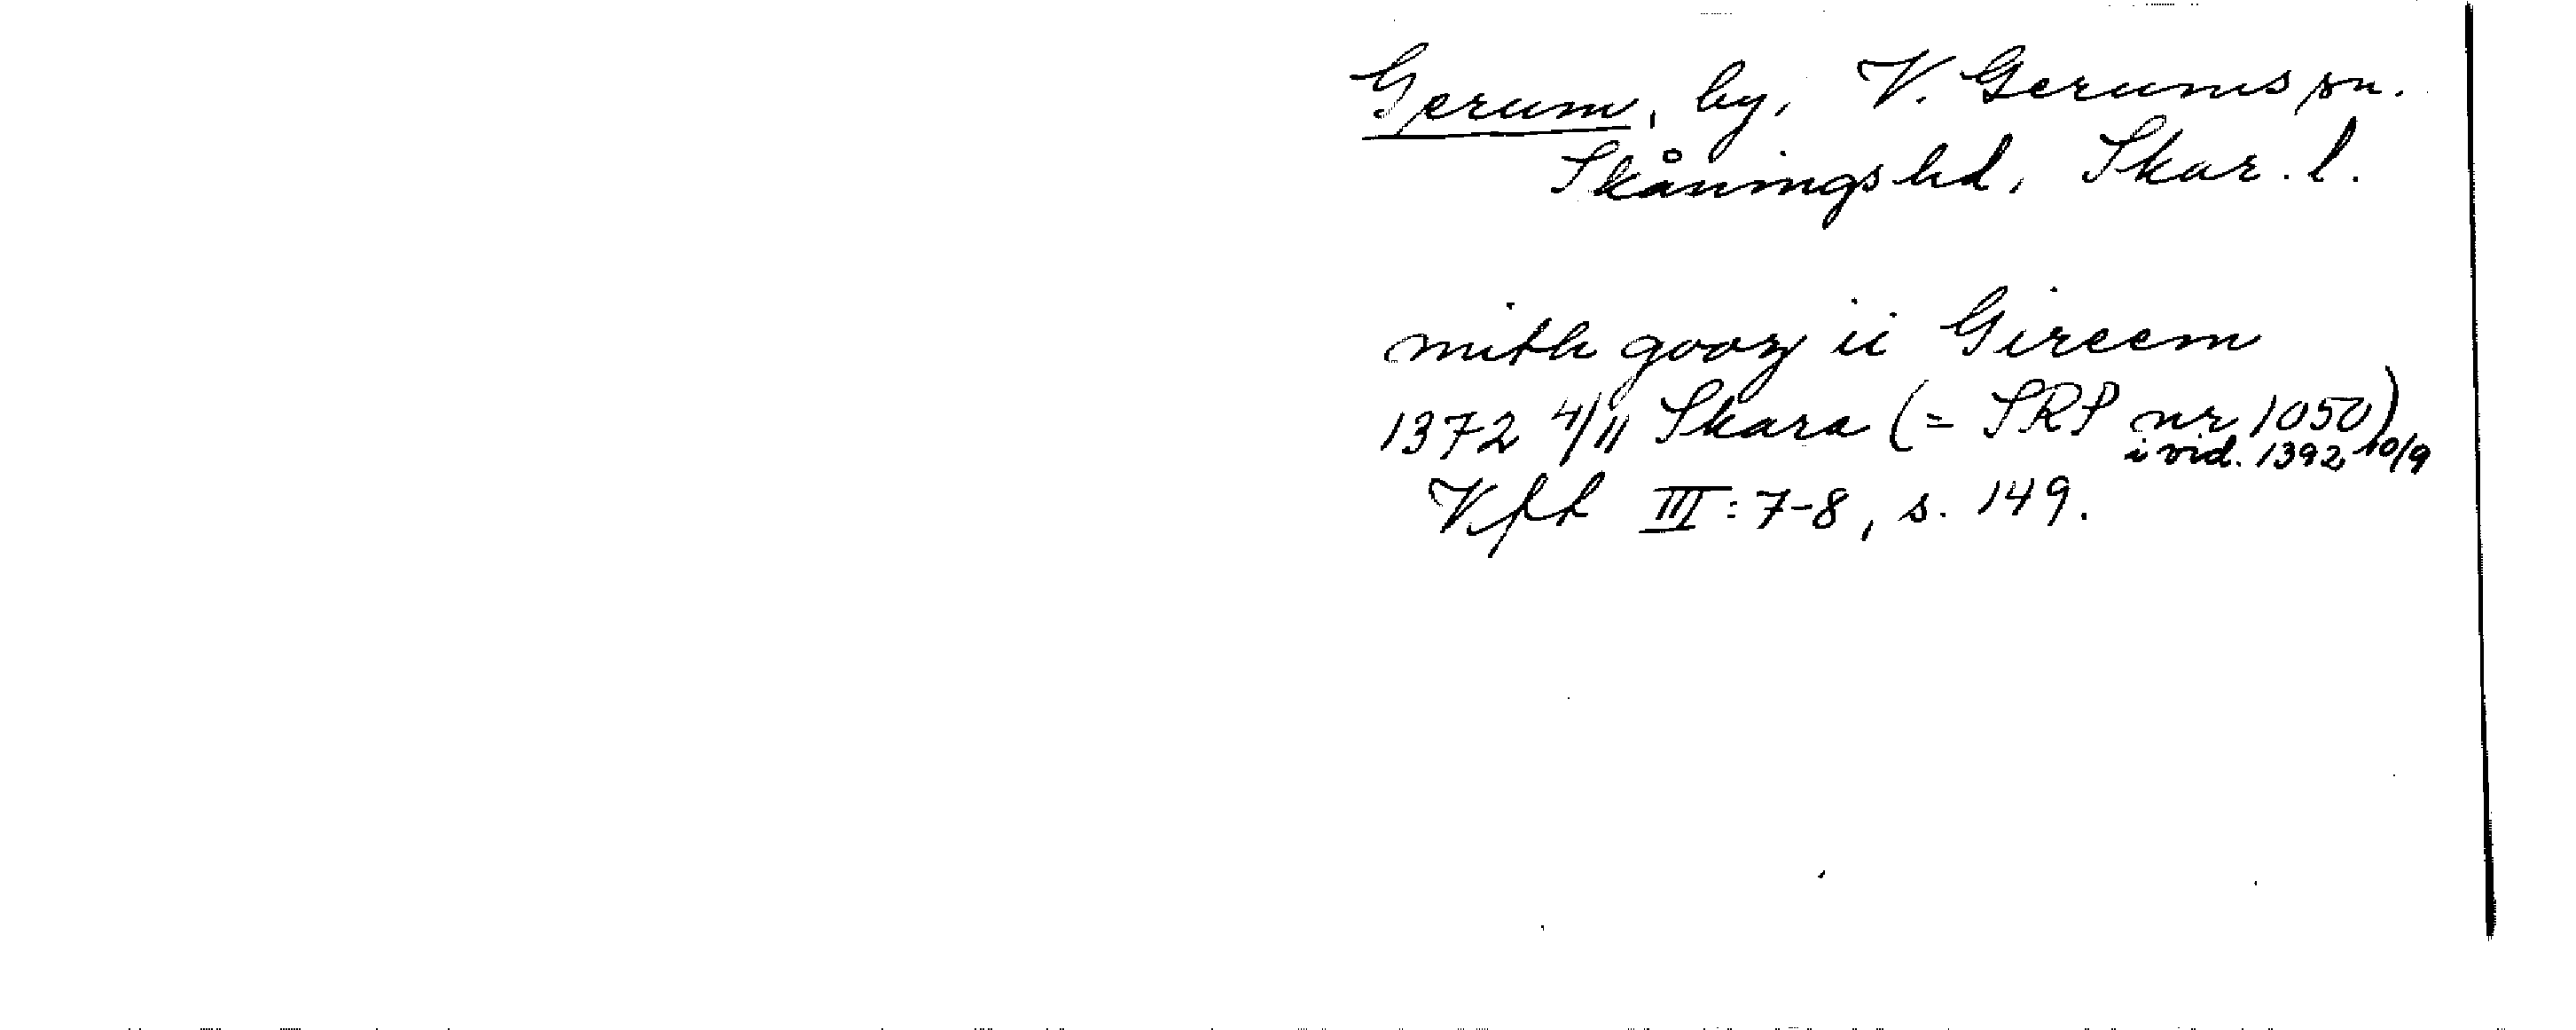 Gerum, by, V. Gerums sn.
Skånings hd, Skar. l.
mith gooz ii Gireem
1372 4/11 Skara (= SRP nr 1050)
i vid. 1392 10/9
Vft III: 7-8, s. 149.